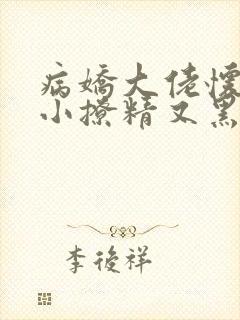 病嬌大佬懷
小撩精又黑
李後祥